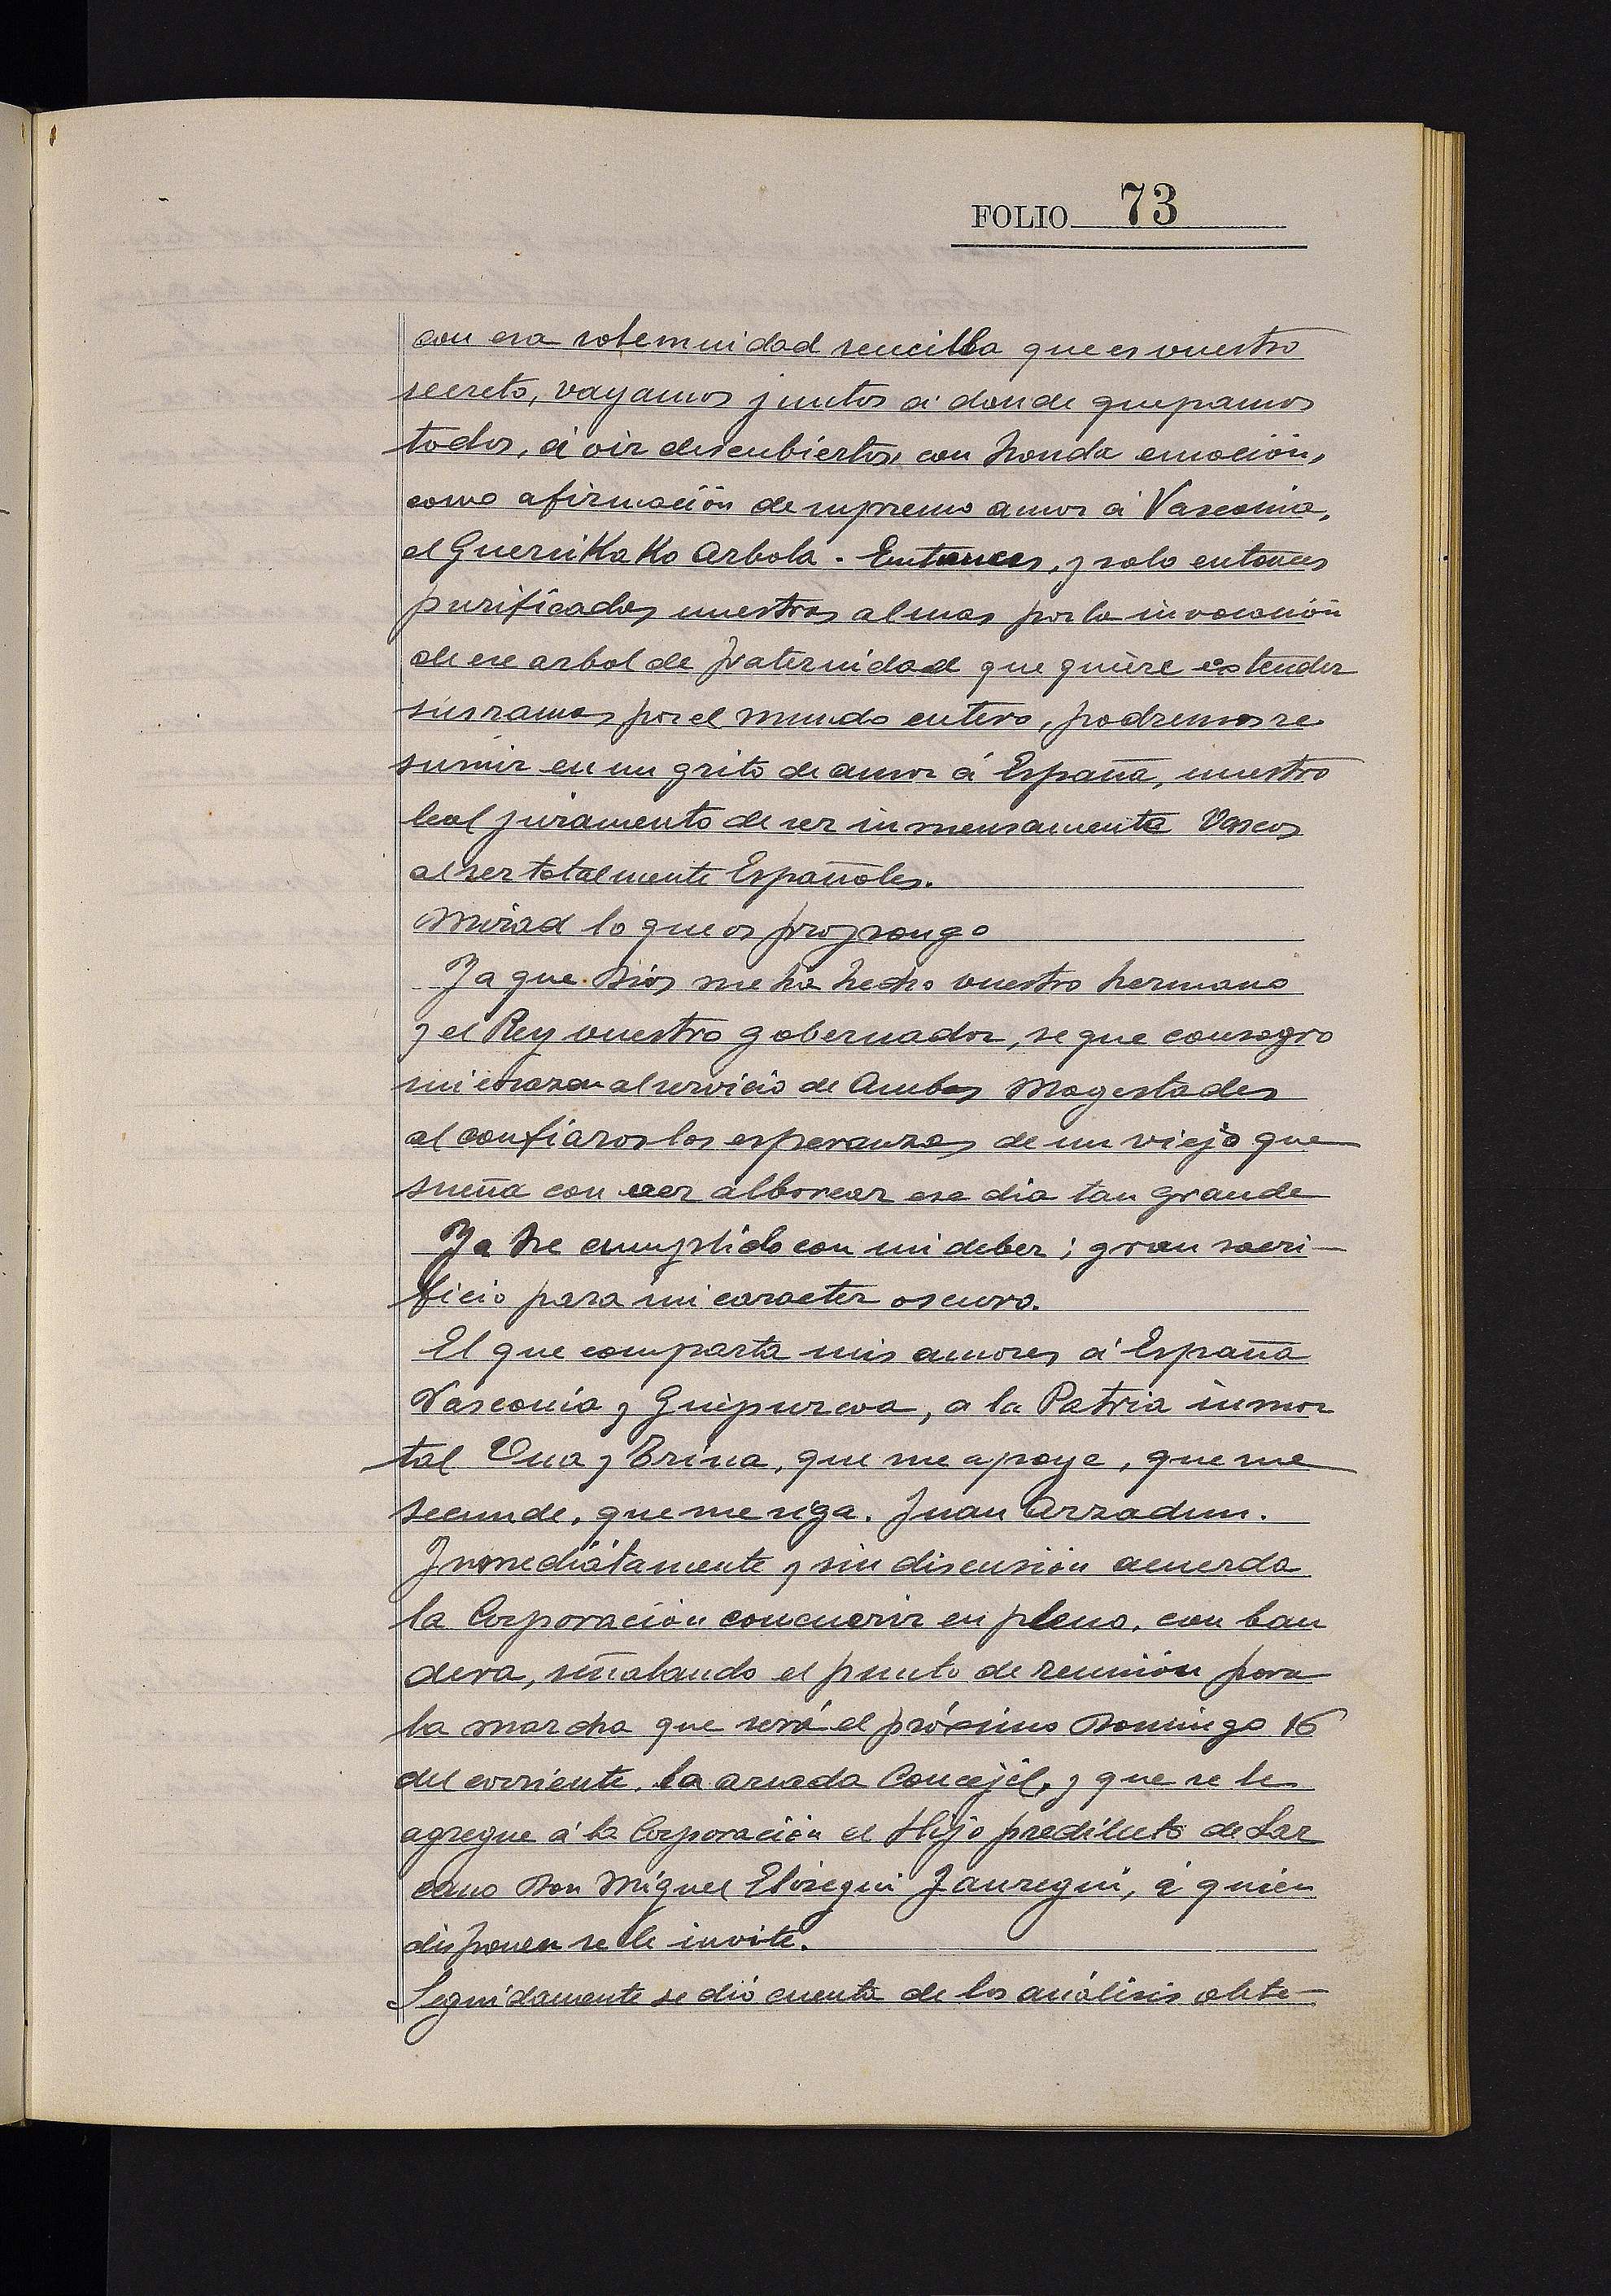 FOLIO 73
con esa solemnidad sencilla que es vuestro
secreto, vayamos juntos á donde quepamos
todos, á oir descubiertos, con honda emoción,
como afirmación de supremo amor á Vasconia,
el Guernikako Arbola. Entonces, y solo entonces
purificadas nuestras almas por la invocación
de ese arbol de fraternidad que quiere estender
sus ramas por el mundo entero, podremos re
sumir en un grito de amor á España, nuestro
leal juramento de ser inmensamente Vascos
al ser totalmente Españoles.
Mirad lo que os propongo
Ya que Dios me ha hecho vuestro hermano
y el Rey vuestro gobernador, se que consagro
mi corazon al servicio de Ambas Magestades
al confiaros las esperanzas de un viejo que
sueña con ver alborear ese dia tan grande
Ya he cumplido con mi deber; gran sacri-
ficio para mi caracter oscuro.
El que comparta mis amores á España
Vasconia y Guipuzcoa, a la Patria inmor
tal Una y Trina, que me apoye, que me
secunde, que me siga. Juan Arzadun.
Inmediatamente y sin discusión acuerda
la Corporación concurrir en pleno, con ban
dera, señalando el punto de reunión para
la marcha que será el próximo Domingo 16
del corriente, la arcada Concejil, y que se le
agregue á la Corporación el Hijo predilecto de Laz
cano Don Miguel Elosegui Jauregui, á quien
disponen se le invite.
Seguidamente se dió cuenta de los análisis obte-